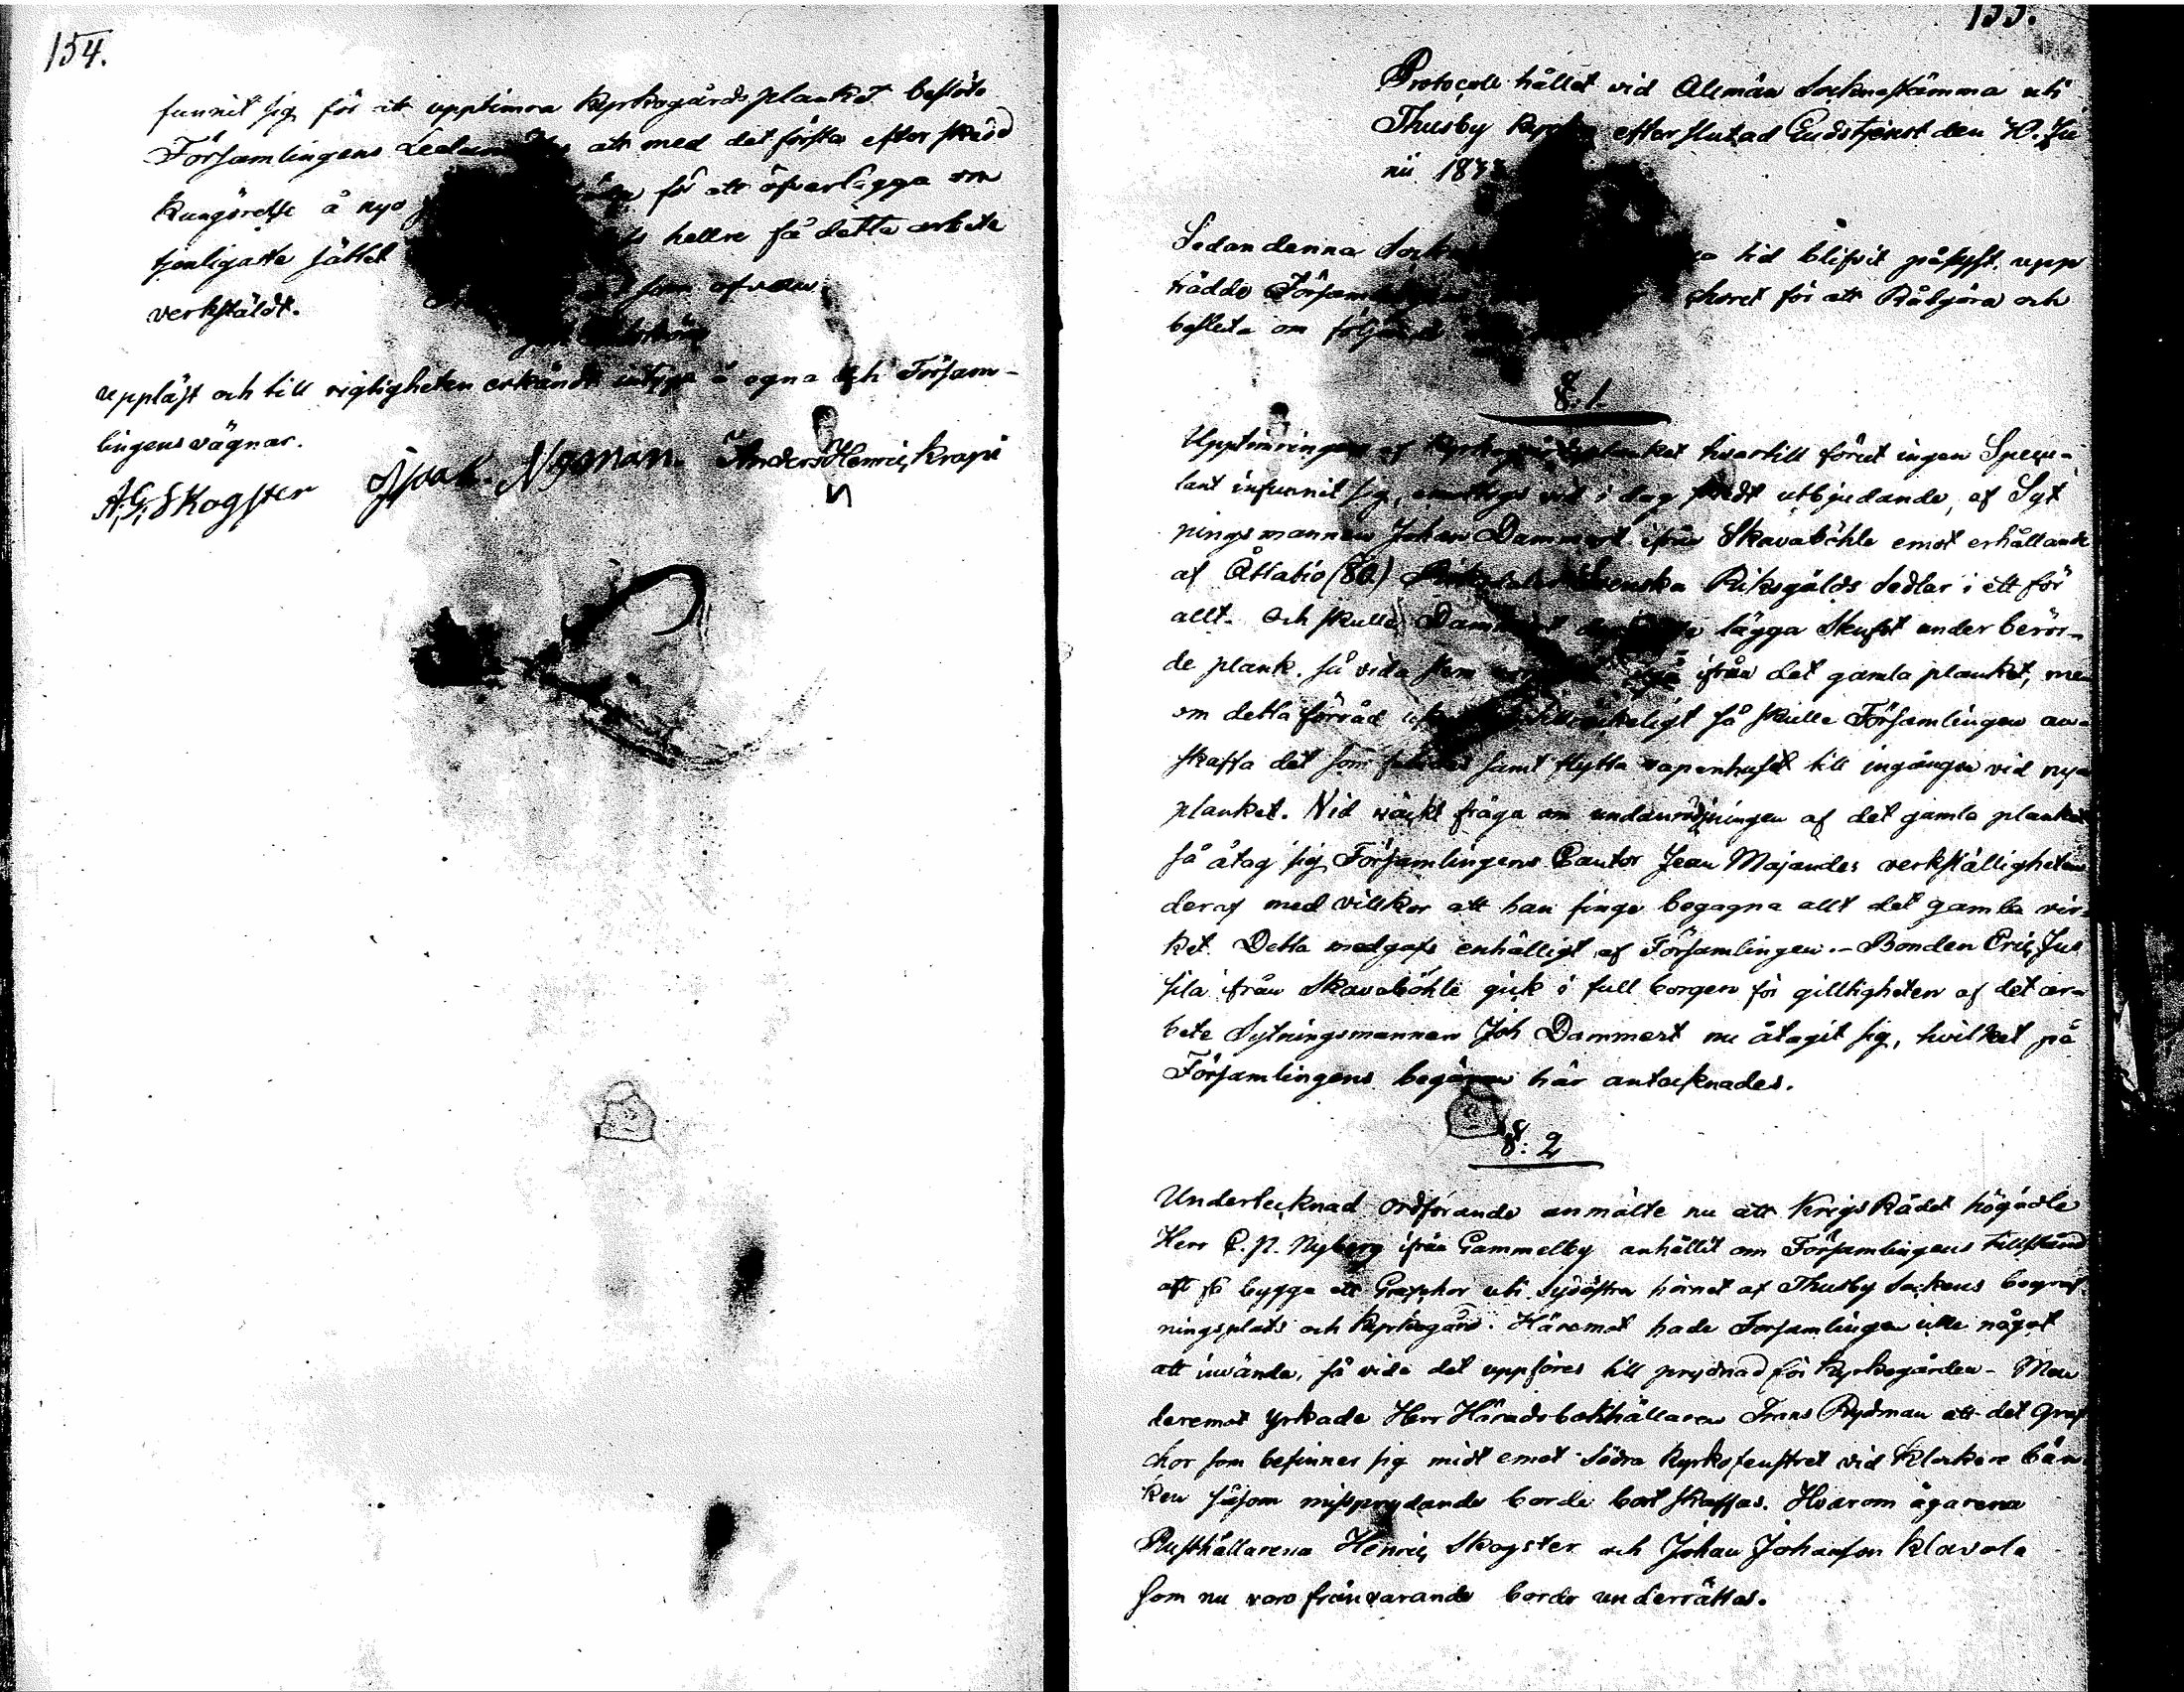 154.
funnit sig för att upptimra Kyrkogårds planket beslöto
Församlingens att med det första efter skedd
Kungörelse å nyo för att öfverlägga om
tjenligaste sättet hellre få detta arbete
verkstäldt. som ofvan
Uppläst och till rigtigheten erkändt intyga å egna och Församlingens
lingens vägnar.
A. G. Skogster Isaak Nyman. Anders Henric Krapi
155.
Protocoll hållet vid Allmän Sockenstämma uti
Thusby Kyrka efter slutad Gudstjenst den 10. Ju
nii
Sedan denna tid blifvit påfyst, upp
trädde Församlingen choret för att Rådgöra och
besluta om följande
§. 1.
Upptimringen af Kyrkogårdsplanket hvartill förut ingen Specu-
lant infunnit sig, emottogs vid i dag skedt utbjudande, af Syt
ningsmannen Johan Dammert ifrån Skavaböhle emot erhållande
af Åttatio (80.) Riksdaler Svenska Riksgälds Sedlar i ett för
allt. Och skulle Dammert lägga Skufot under berör-
de plank. så vida ifrån det gamla planket, men
om detta förråd så skulle Församlingen an-
skaffa det som samt flytta vapenhuset till ingången vid nya
planket. Vid väckt fråga om undanrödjningen af det gamla planket
så åtog sig Församlingens Cantor Jean Majander verkställigheten
deraf med villkor att han finge begagna allt det gamla vir-
ket. Detta medgafs enhälligt af Församlingen. – Bonden Eric Jus
sila ifrån Skavaböhle gick i full borgen för gilltigheten af det ar-
bete Sytningsmannen Joh Dammert nu åtagit sig, hvilket på
Församlingens begäran här antecknades.
§. 2
Undertecknad ordförande anmälte nu att Krigs Rådet högädle
Herr C. N. Nyberg ifrån Gammelby anhållit om Församlingens tillstånd
att få bygga ett Grafchor uti sydöstra hörnet af Thusby Sockens begraf
ningsplats och Kyrkogård. Häremot hade Församlingen icke något
att invända, så vida det uppföres till prydnad för Kyrkogården – Men
deremot yrkade Herr Häradsbokhållaren Frans Rydman att det Graf
chor som befinnes sig midt emot Södra Kyrkofenstret vid Klockare bän
ken såsom missprydande borde bort skaffas. Hvarom ägarena
Rusthållarena Henric Skogster och Johan Johansson Klavola
som nu voro frånvarande borde underrättas.